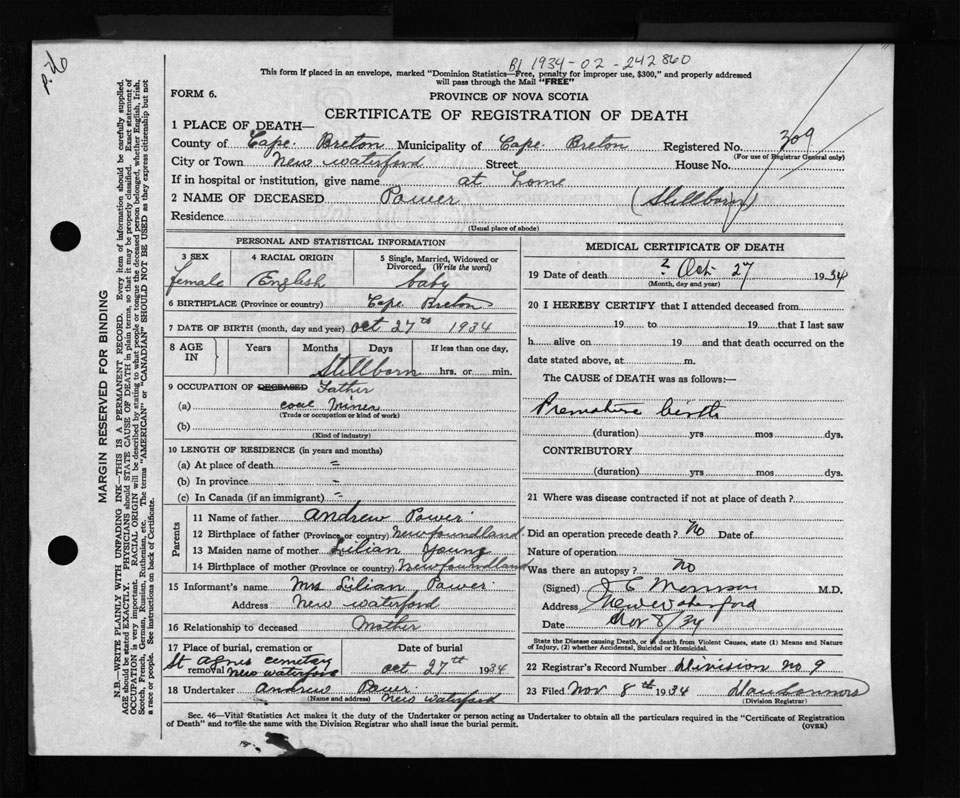 B1 1934-02-242860
This form if placed in an envelope, marked "Dominion Statistics—Free, penalty for improper use, $300," and properly addressed
will pass through the Mail "FREE"
FORM 6.
PROVINCE OF NOVA SCOTIA
CERTIFICATE OF REGISTRATION OF DEATH
1 PLACE OF DEATH—
County of Cape Breton Municipality of Cape Breton Registered No. 309
(For use of Registrar General only)
City or Town New Waterford Street House No.
If in hospital or institution, give name at home
2 NAME OF DECEASED Power (Stillborn)
Residence
(Usual place of abode)
PERSONAL AND STATISTICAL INFORMATION
3 SEX female
4 RACIAL ORIGIN English
5 Single, Married, Widowed or Divorced, (Write the word) baby
6 BIRTHPLACE (Province or country) Cape Breton
7 DATE OF BIRTH (month, day and year) Oct 27th 1934
8 AGE IN Years Months Days If less than one day,
Stillborn hrs. or min.
9 OCCUPATION OF DECEASED Father
(a) coal Miner
(Trade or occupation or kind of work)
(b)
(Kind of industry)
10 LENGTH OF RESIDENCE (in years and months)
(a) At place of death
(b) In province
(c) In Canada (if an immigrant)
Parents
11 Name of father Andrew Power
12 Birthplace of father (Province or country) Newfoundland
13 Maiden name of mother Lilian Young
14 Birthplace of mother (Province or country) Newfoundland
15 Informant's name Mrs Lilian Power
Address New Waterford
16 Relationship to deceased Mother
17 Place of burial, cremation or removal St Agnes cemetery New Waterford
Date of burial Oct 27th 1934
18 Undertaker Andrew Power
(Name and address) New Waterford
MEDICAL CERTIFICATE OF DEATH
19 Date of death ? Oct 27 1934
(Month, day and year)
20 I HEREBY CERTIFY that I attended deceased from
19 to 19 that I last saw
h alive on 19 and that death occurred on the
date stated above, at m.
The CAUSE of DEATH was as follows:—
Premature birth
(duration) yrs mos dys.
CONTRIBUTORY
(duration) yrs mos dys.
21 Where was disease contracted if not at place of death?
Did an operation precede death? No Date of
Nature of operation
Was there an autopsy? No
(Signed) J C Morrison M.D.
Address New Waterford
Date Nov 8/34
State the Disease causing Death, or in death from Violent Causes, state (1) Means and Nature
of Injury, (2) whether Accidental, Suicidal or Homicidal.
22 Registrar's Record Number Division No 9
23 Filed Nov 8th 1934 Dan Connors
(Division Registrar)
Sec. 46—Vital Statistics Act makes it the duty of the Undertaker or person acting as Undertaker to obtain all the particulars required in the "Certificate of Registration
of Death" and to file the same with the Division Registrar who shall issue the burial permit.
(OVER)
MARGIN RESERVED FOR BINDING
N.B.—WRITE PLAINLY WITH UNFADING INK—THIS IS A PERMANENT RECORD. Every item of information should be carefully supplied.
AGE should be stated EXACTLY. PHYSICIANS should STATE CAUSE OF DEATH in plain terms, so that it may be properly classified. Exact statement of
OCCUPATION is very important. RACIAL ORIGIN will be described by stating to what people or tongue the deceased person belonged, whether English, Irish,
Scotch, French, German, Russian, Ruthenian, etc. The terms "AMERICAN" or "CANADIAN" SHOULD NOT BE USED as they express citizenship but not
a race or people. See instructions on back of Certificate.